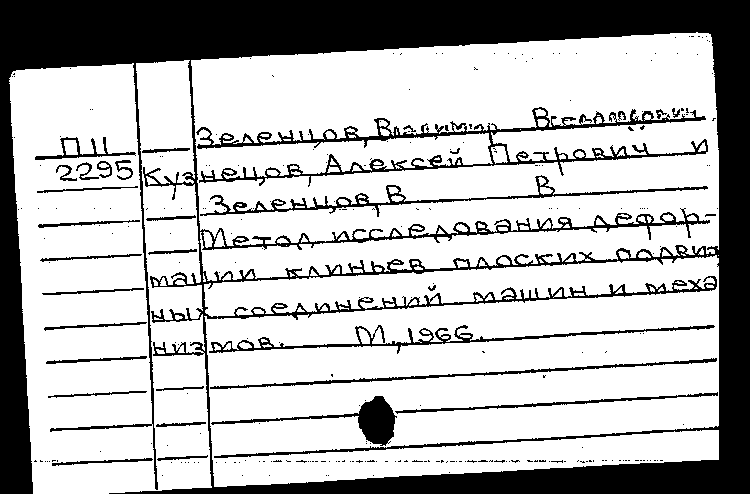 Зеленцов, Владимир
П 11
2295 Кузнецов, Алексей Петрович и
Зеленцов, В В
Метод исследования дефор-
мации клиньев плоских подвиж
ных соединений машин и меха
низмов. М., 1966.